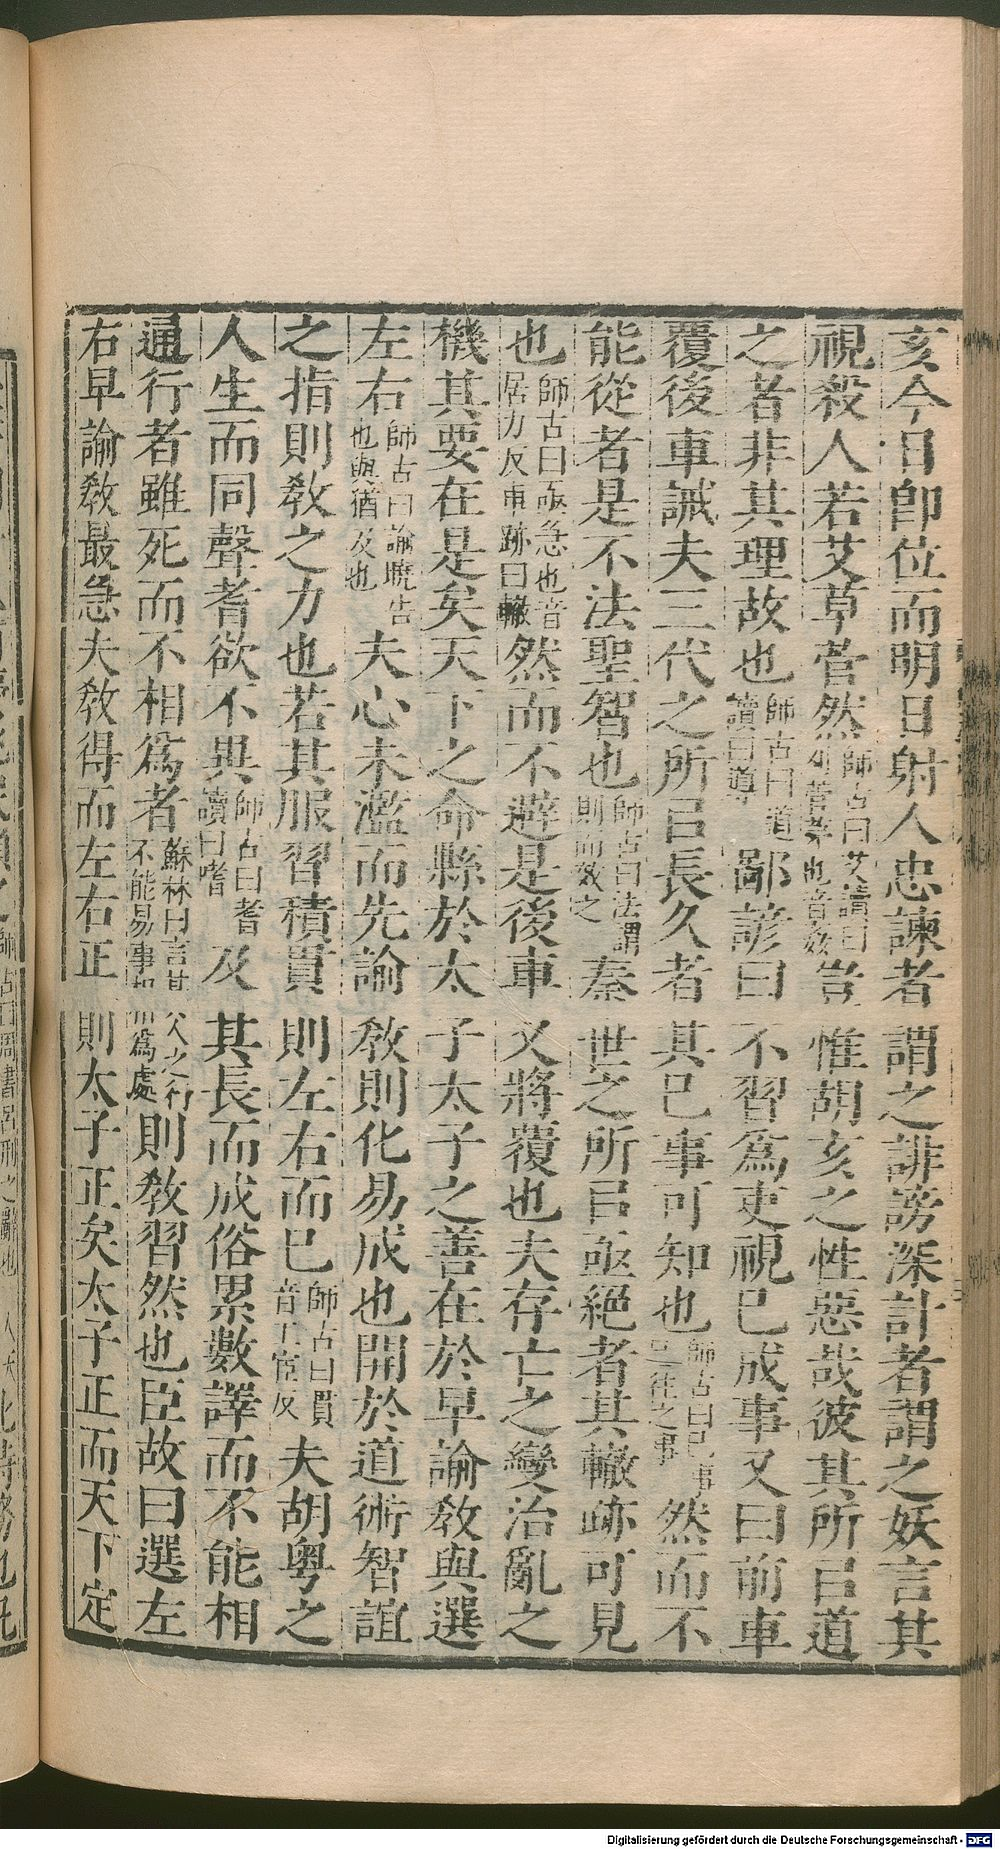 亥今日卽位而明日射人忠諫者謂之誹謗深計者謂之妖言其
視殺人若艾草菅然師古曰艾讀曰刈菅茅也音姦豈惟胡亥之性惡哉彼其所㠯道
之者非其理故也師古曰道讀曰導鄙諺曰不習爲吏視已成事又曰前車
覆後車誡夫三代之所㠯長久者其已事可知也師古曰已事已往之事然而不
能從者是不法聖智也師古曰法謂則而效之秦世之所㠯亟絕者其轍跡可見
也師古曰亟急也音居力反車跡曰轍然而不避是後車又將覆也夫存亡之變治亂之
機其要在是矣天下之命縣於太子太子之善在於早諭敎與選
左右師古曰諭曉告也與猶及也夫心未濫而先諭敎則化易成也開於道術智誼
之指則敎之力也若其服習積貫則左右而已師古曰貫音工宦反夫胡粵之
人生而同聲耆欲不異師古曰耆讀曰嗜及其長而成俗累數譯而不能相
通行者雖死而不相爲者蘇林曰言其人之行不能易事相爲處則敎習然也臣故曰選左
右早諭敎最急夫敎得而左右正則太子正矣太子正而天下定
師古曰周書呂刑之辭也
Digitalisierung gefördert durch die Deutsche Forschungsgemeinschaft - DFG